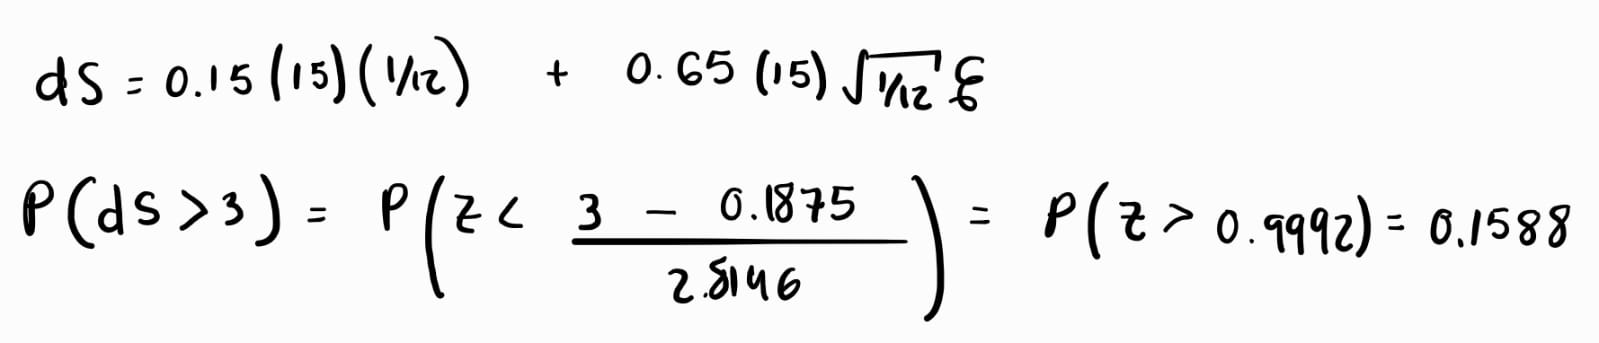 dS = 0.15(15)(1/12) + 0.65(15)√(1/12) ξ
P(dS>3) = P(Z < (3 - 0.1875)/2.8146) = P(Z > 0.9992) = 0.1588